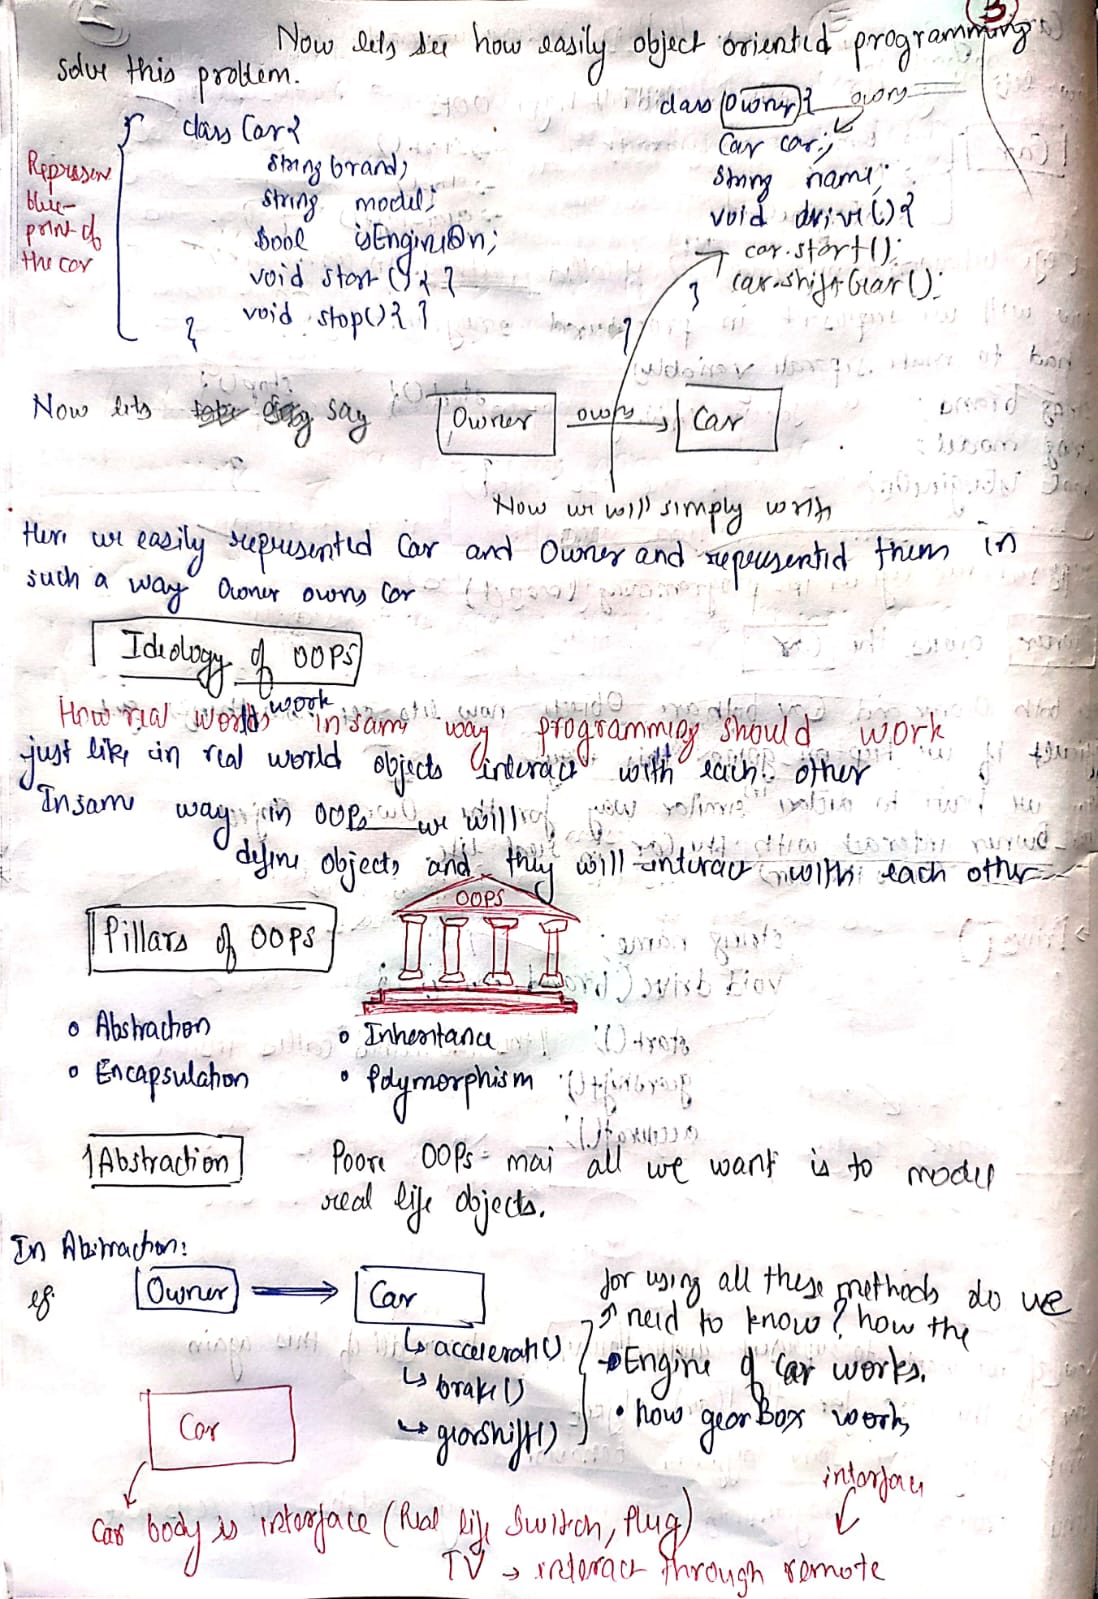 3
Now lets see how easily object oriented programming
solve this problem.
class Car{
string brand;
string model;
bool isEngineOn;
void start(){ }
void stop(){ }
}
Represen
blue-
print of
the car
class Owner{ owns
Car car;
string name;
void drive(){
car.start();
car.shiftGear();
}
}
Now lets say
Owner owns Car
Now we will simply write
Here we easily represented Car and Owner and represented them in
such a way Owner owns Car
Ideology of OOPS
How real worlds work in same way programming should work
just like in real world objects interact with each other
In same way in OOPs we will
define objects and they will interact with each other
Pillars of OOPS
OOPS
• Abstraction
• Encapsulation
• Inheritance
• Polymorphism
1 Abstraction
Poore OOPs mai all we want is to model
real life objects.
In Abstraction:
eg.
Owner
Car
↳ accelerate()
↳ brake()
↳ gearshift()
for using all these methods do we
need to know? how the
• Engine of Car works.
• how gearBox works
Car
Car body is interface (Real life Switch, Plug)
interface
TV → interact through remote